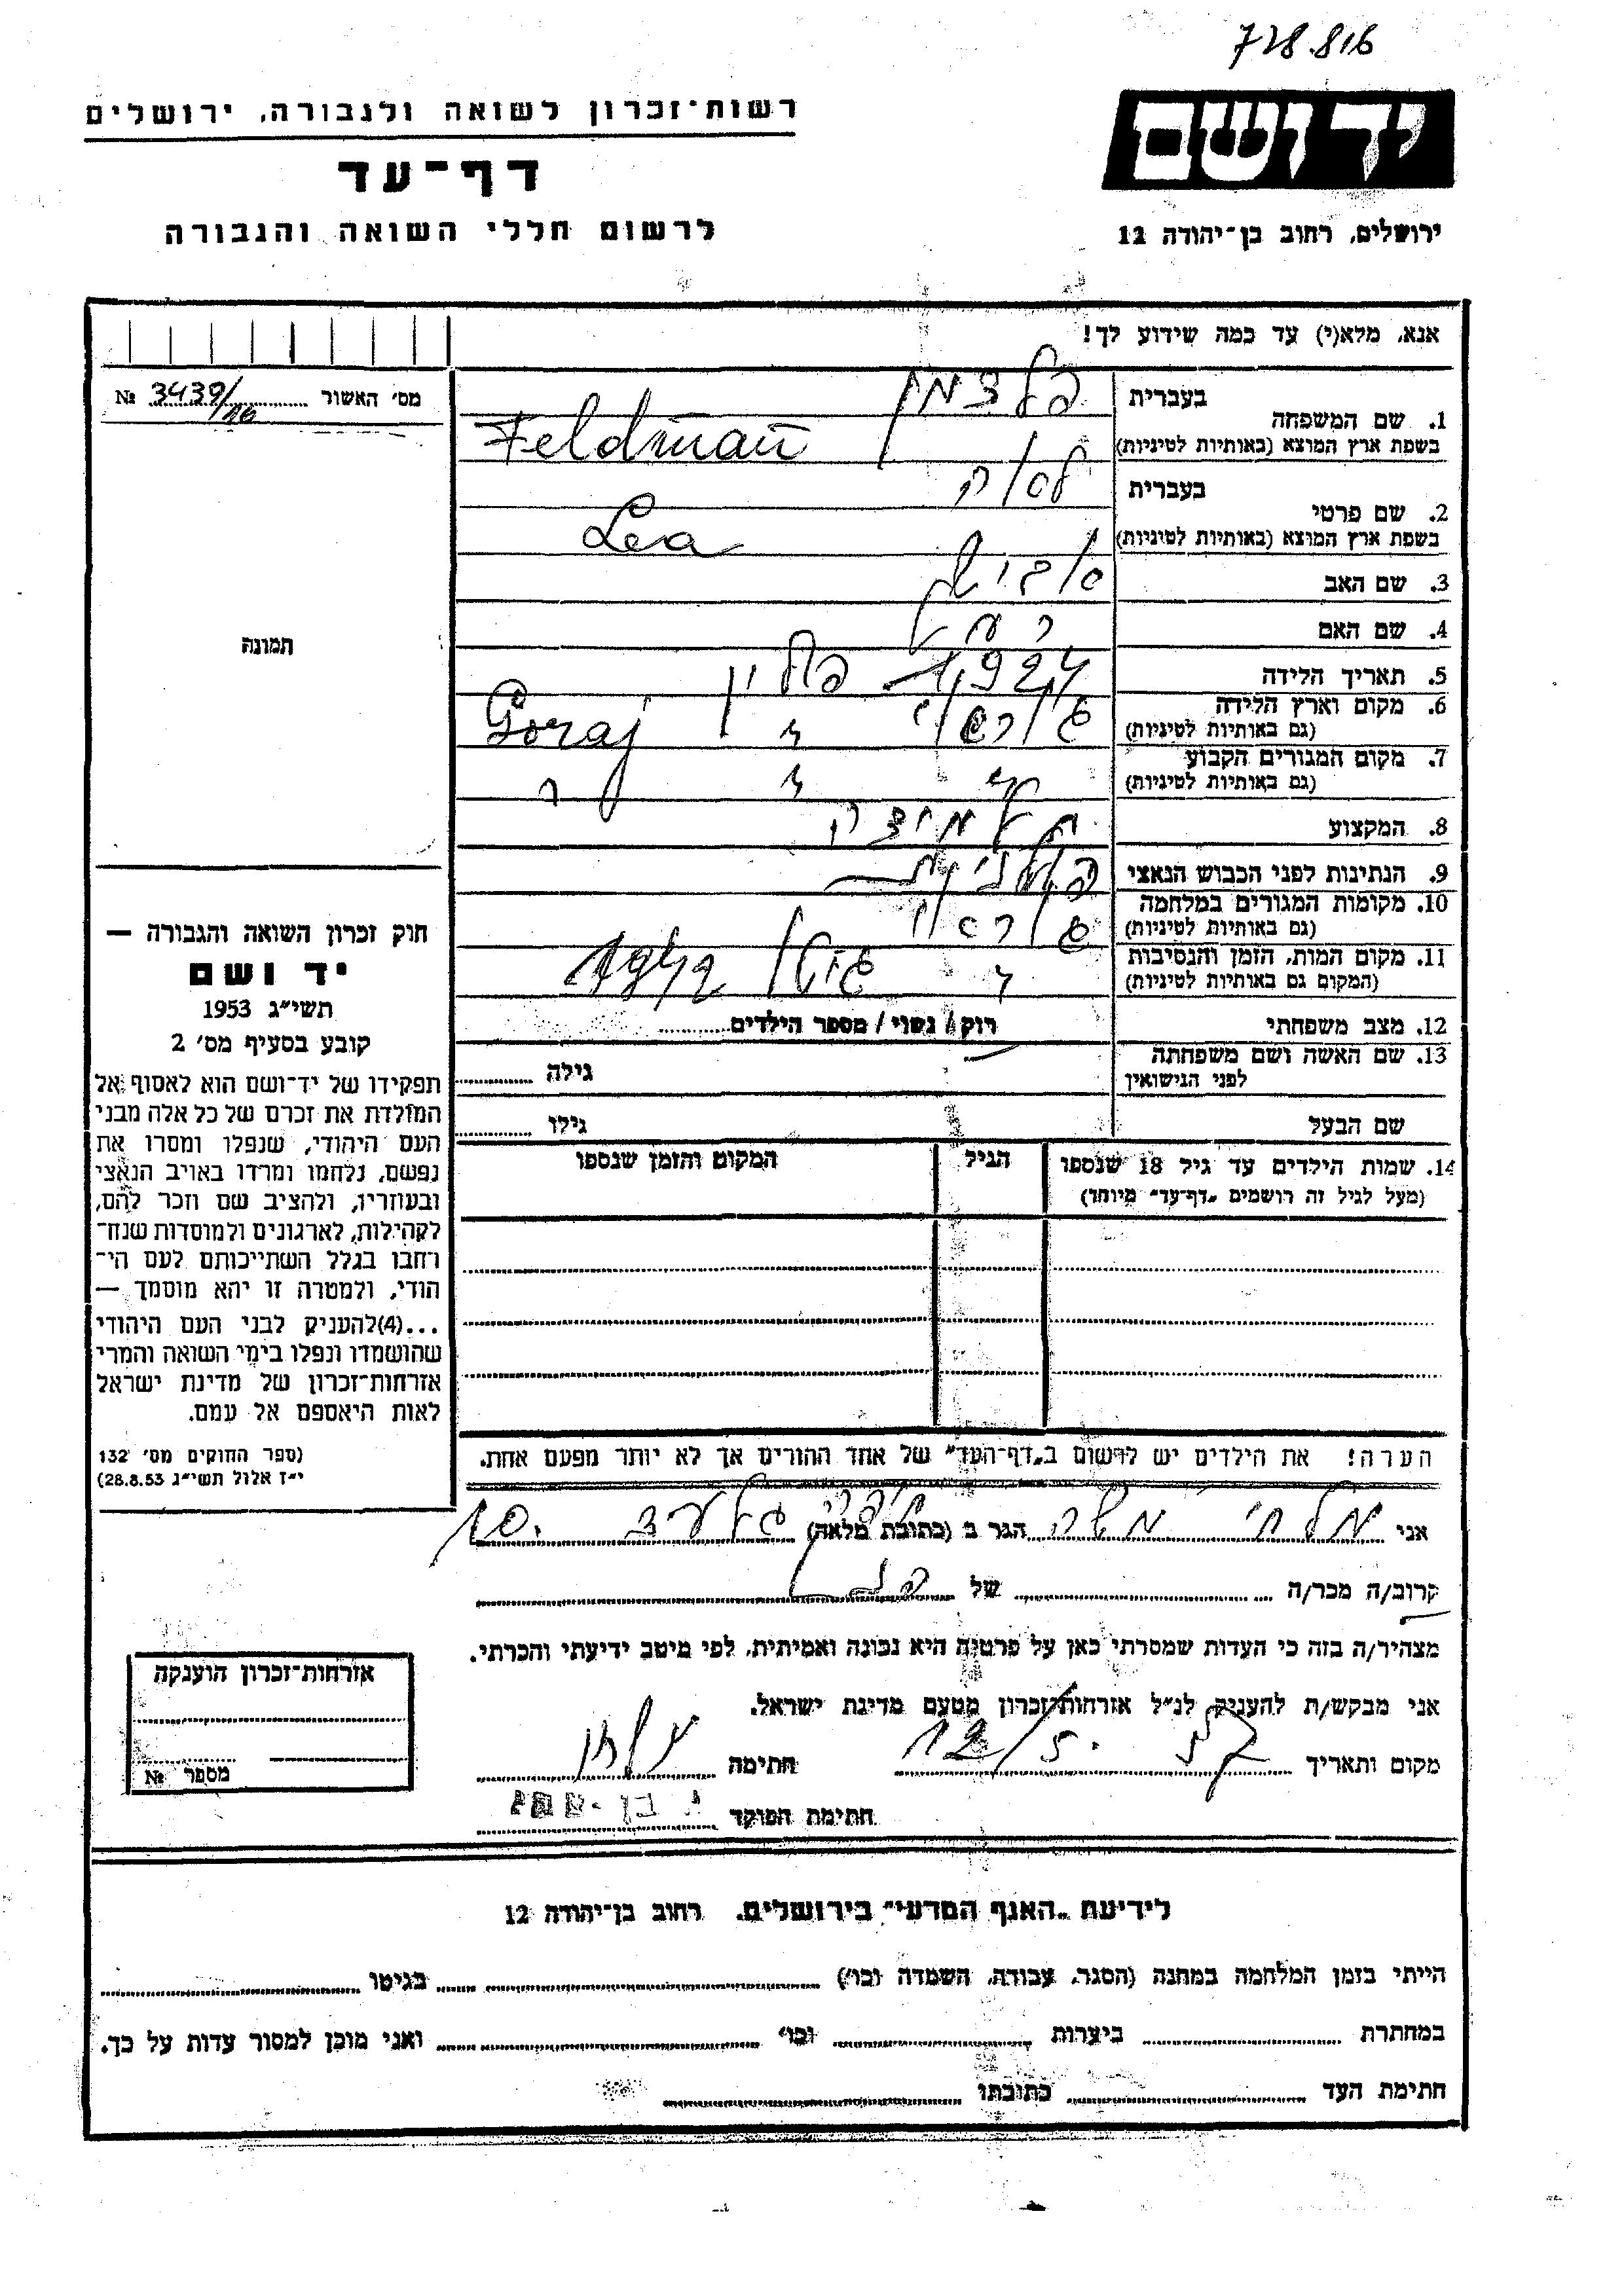 728.816
רשות-זכרון לשואה ולגבורה, ירושלים
דף-עד
לרשום חללי השואה והגבורה
ידושם
ירושלים, רחוב בן-יהודה 12
אנא, מלא(י) עד כמה שידוע לך!
מס׳ האשור № 3439/16
תמונה
1. שם המשפחה
בעברית פלדמן
בשפת ארץ המוצא (באותיות לטיניות) Feldman
2. שם פרטי
בעברית לאה
בשפת ארץ המוצא (באותיות לטיניות) Lea
3. שם האב
4. שם האם
5. תאריך הלידה 1924
6. מקום וארץ הלידה פולין
(גם באותיות לטיניות) גוראי Goraj
7. מקום המגורים הקבוע
(גם באותיות לטיניות)
8. המקצוע תלמידה
9. הנתינות לפני הכבוש הנאצי פולנית
10. מקומות המגורים במלחמה
(גם באותיות לטיניות) גוראי
11. מקום המות, הזמן והנסיבות
(המקום גם באותיות לטיניות)
12. מצב משפחתי רוק / נשוי / מספר הילדים
13. שם האשה ושם משפחתה
לפני הנישואין גילה
שם הבעל גילו
14. שמות הילדים עד גיל 18 שנספו הגיל המקום והזמן שנספו
(מעל לגיל זה רושמים „דף-עד״ מיוחד)
חוק זכרון השואה והגבורה —
יד ושם
תשי״ג 1953
קובע בסעיף מס׳ 2
תפקידו של יד-ושם הוא לאסוף אל
המולדת את זכרם של כל אלה מבני
העם היהודי, שנפלו ומסרו את
נפשם, נלחמו ומרדו באויב הנאצי
ובעוזריו, ולהציב שם וזכר להם,
לקהילות, לארגונים ולמוסדות שנח-
רחבו בגלל השתייכותם לעם הי-
הודי, ולמטרה זו יהא מוסמך —
...(4)להעניק לבני העם היהודי
שהושמדו ונפלו בימי השואה והמרי
אזרחות-זכרון של מדינת ישראל
לאות היאספם אל עמם.
(ספר החוקים מס׳ 132
י״ז אלול תשי״ג 28.8.53)
הערה! את הילדים יש לרשום ב„דף-העד״ של אחד ההורים אך לא יותר מפעם אחת.
אני משה הגר ב (כתובת מלאה) 10.
קרוב/ה מכר/ה של
מצהיר/ה בזה כי העדות שמסרתי כאן על פרטיה היא נכונה ואמיתית, לפי מיטב ידיעתי והכרתי.
אני מבקש/ת להעניק לנ״ל אזרחות-זכרון מטעם מדינת ישראל.
מקום ותאריך 12/5. 57 חתימה
חתימת הפוקד
אזרחות-זכרון הוענקה
מספר №
לידיעת „האגף המדעי״ בירושלים, רחוב בן-יהודה 12
הייתי בזמן המלחמה במחנה (הסגר, עבודה, השמדה וכו׳) בגיטו
במחתרת ביערות וכו׳ ואני מוכן למסור עדות על כך.
חתימת העד כתובתו